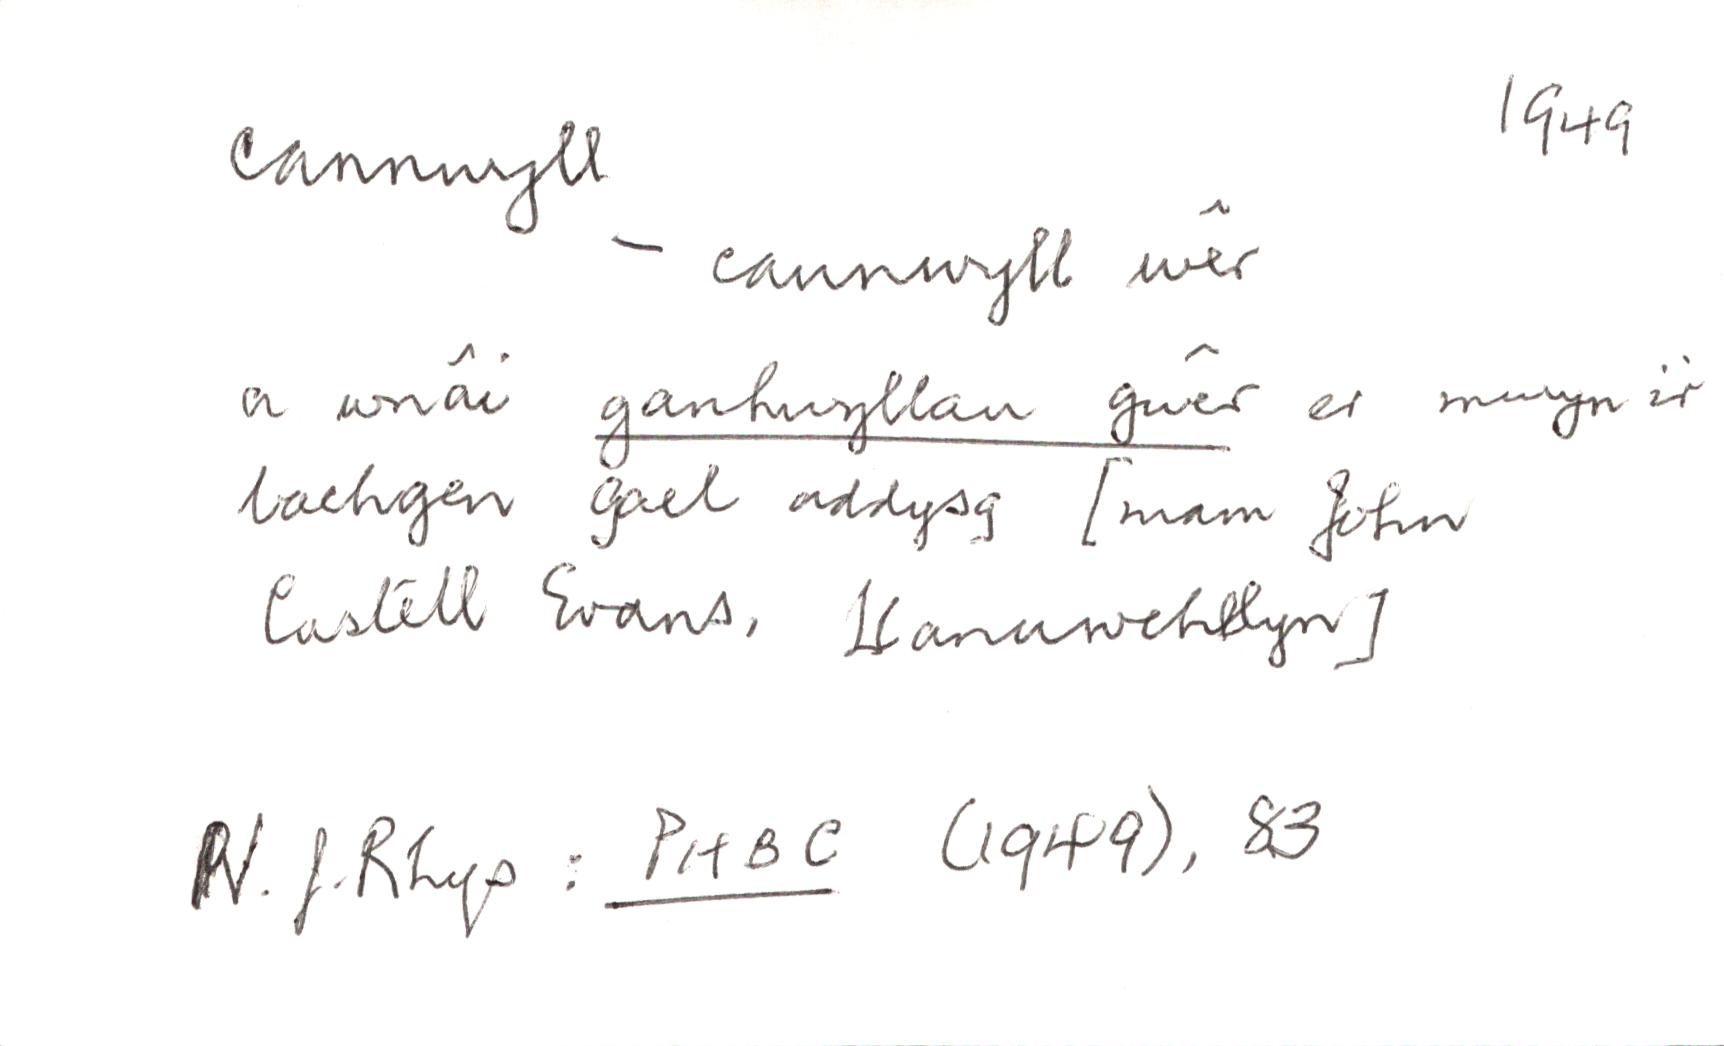 1949
cannwyll
– cannwyll wêr
a wnâi ganhwyllau gwêr er mwyn i'r
bachgen gael addysg [mam John
Castell Evans, Llanuwchllyn]
N. J. Rhys : PHBC (1949), 83